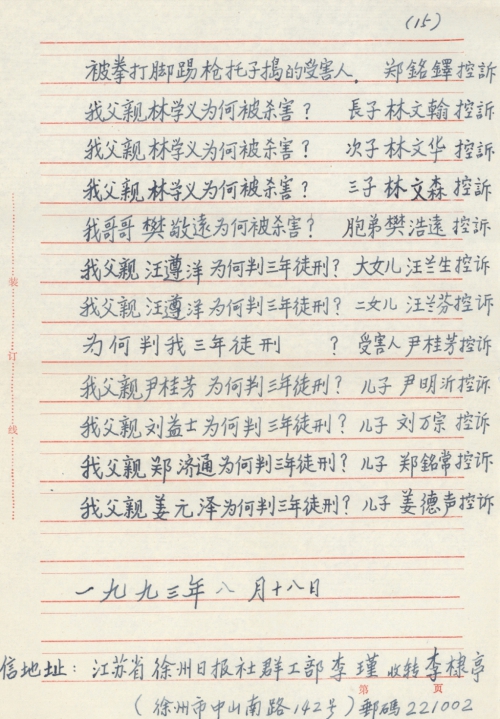 (15)
被拳打脚踢枪托子捣的受害人。 郑銘鐸控訴
我父親林学义为何被杀害？ 長子林文翰控訴
我父親林学义为何被杀害？ 次子林文华控訴
我父親林学义为何被杀害？ 三子林文森控訴
我哥哥樊敬遠为何被杀害？ 胞弟樊浩遠控訴
我父親汪遵洋为何判三年徒刑？ 大女儿汪兰生控訴
我父親汪遵洋为何判三年徒刑？ 二女儿汪兰芬控訴
为何判我三年徒刑 ？ 受害人尹桂芳控訴
我父親尹桂芳为何判三年徒刑？ 儿子尹明沂控訴
我父親刘益士为何判三年徒刑？ 儿子刘万宗控訴
我父親郑济通为何判三年徒刑？ 儿子郑銘常控訴
我父親姜元泽为何判三年徒刑？ 儿子姜德声控訴
装
订
线
一九九三年八月十八日
信地址：江苏省徐州日报社群工部李瑾收转李棣亭
第 页
(徐州市中山南路142号)郵碼221002